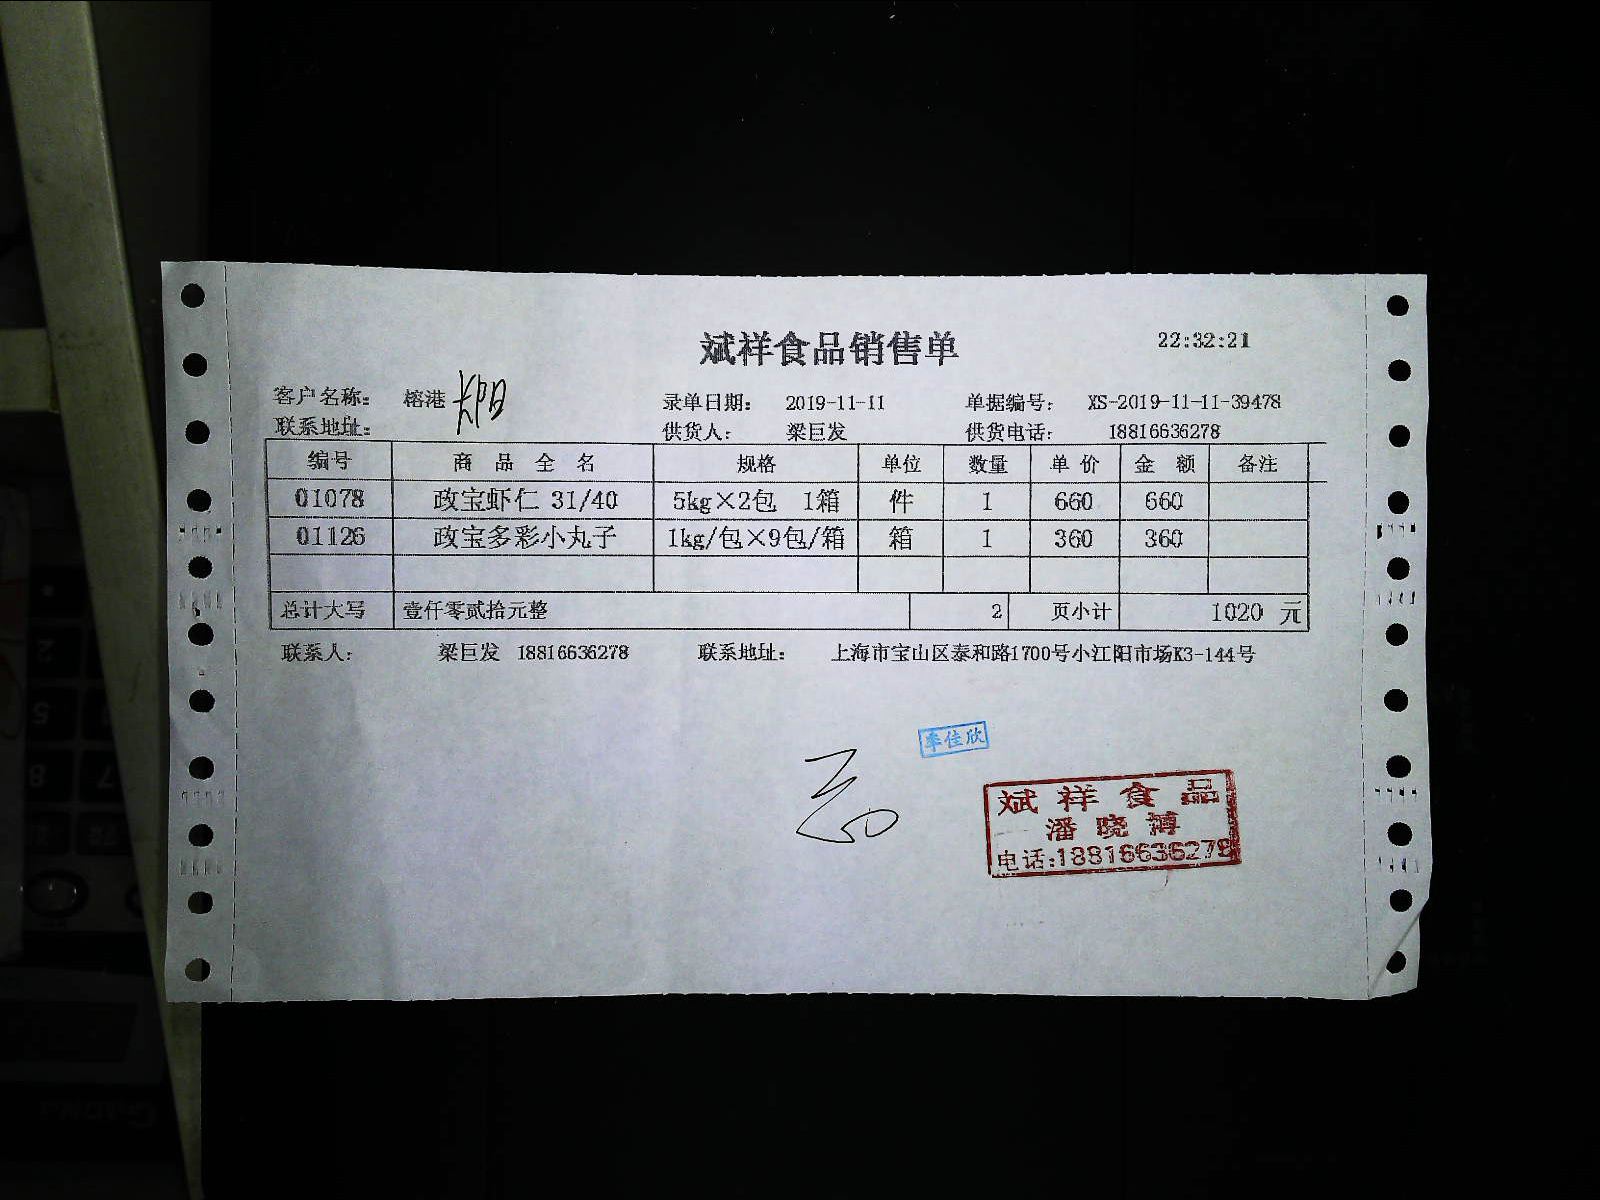 斌祥食品销售单 22:32:21
客户名称: 榕港 录单日期: 2019-11-11 单据编号: XS-2019-11-11-39478
联系地址: 供货人: 梁巨发 供货电话: 18816636278
编号 商品全名 规格 单位 数量 单价 金额 备注
01078 政宝虾仁 31/40 5kg×2包 1箱 件 1 660 660
01126 政宝多彩小丸子 1kg/包×9包/箱 箱 1 360 360
总计大写 壹仟零贰拾元整 2 页小计 1020 元
联系人: 梁巨发 18816636278 联系地址: 上海市宝山区泰和路1700号小江阳市场K3-144号
佳欣
斌祥食品
潘晓博
电话:18816636278